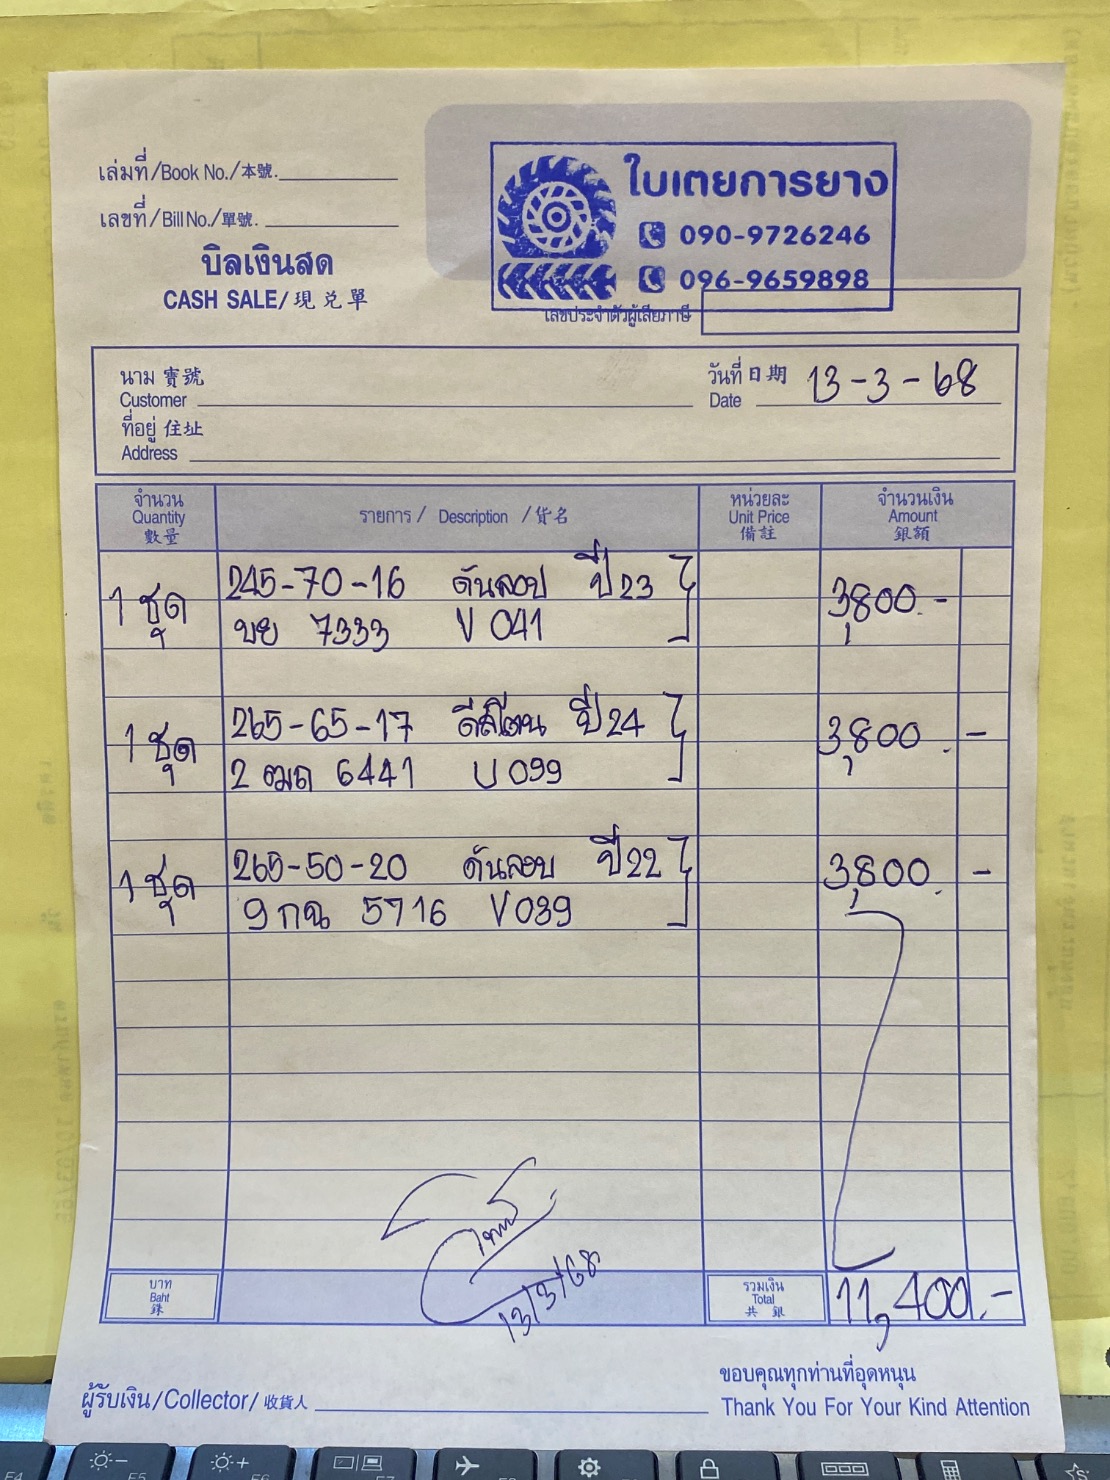 เล่มที่/Book No./本號.
เลขที่/Bill No./單號.
บิลเงินสด
CASH SALE/現兌單
ใบเตยการยาง
090-9726246
096-9659898
เลขประจำตัวผู้เสียภาษี
นาม 寶號
Customer
วันที่ 日期 13-3-68
Date
ที่อยู่ 住址
Address
จำนวน
Quantity
數量
รายการ / Description / 貨名
หน่วยละ
Unit Price
備註
จำนวนเงิน
Amount
銀額
1 ชุด 245-70-16 ดันลอป ปี23 3,800.-
ขย 7333 V 041
1 ชุด 265-65-17 ดีสโตน ปี24 3,800.-
2 ฒถ 6441 U 099
1 ชุด 265-50-20 ดันลอบ ปี22 3,800.-
9 กฉ 5716 V 039
13/3/68
บาท
Baht
銖
รวมเงิน
Total
共 銀
11,400.-
ขอบคุณทุกท่านที่อุดหนุน
ผู้รับเงิน/Collector/收貨人
Thank You For Your Kind Attention
F4 F5 F6 F7